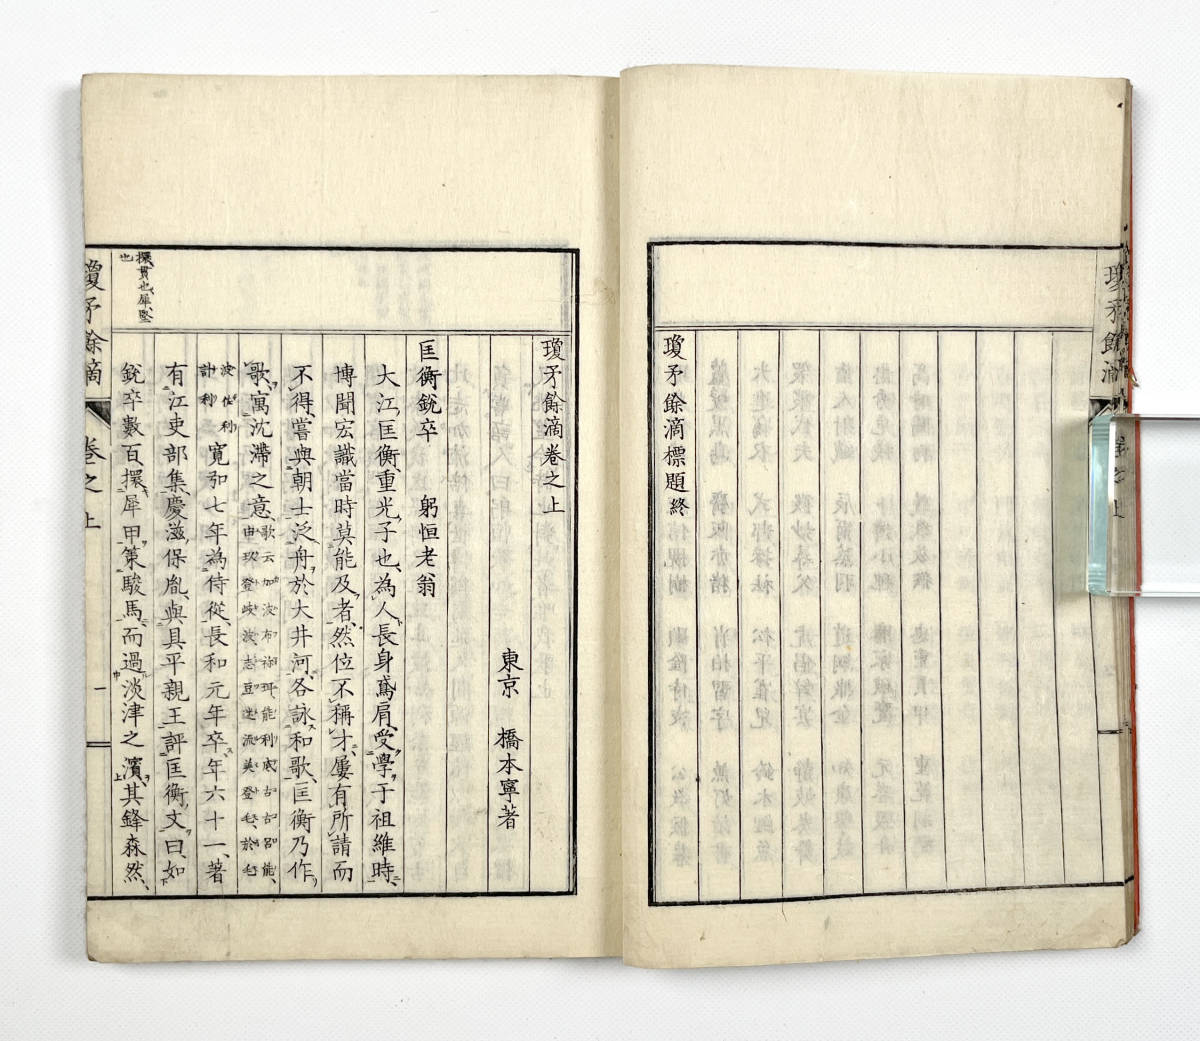 瓊矛餘滴標題終
瓊矛餘滴卷之上
東京　橋本寧著
匡衡銳卒　躬恒老翁
大江匡衡重光子也、為人長身鳶肩、受學于祖維時、
博聞宏識當時莫能及者、然位不稱才、屢有所請而
不得、嘗與朝士泛舟於大井河、各詠和歌、匡衡乃作
歌、寓沈滯之意、歌云加波布祢耳能利底古古呂能、由玖登岐波志豆逆流美登毛於毛
波佐利計利　寬弘七年為侍從、長和元年卒、年六十一、著
有江吏部集、慶滋保胤、與具平親王評匡衡文曰、如
銳卒數百、擐犀甲、策駿馬、而過淡津之濱、其鋒森然、
擐貫也、犀堅也
瓊矛餘滴　卷之上　一